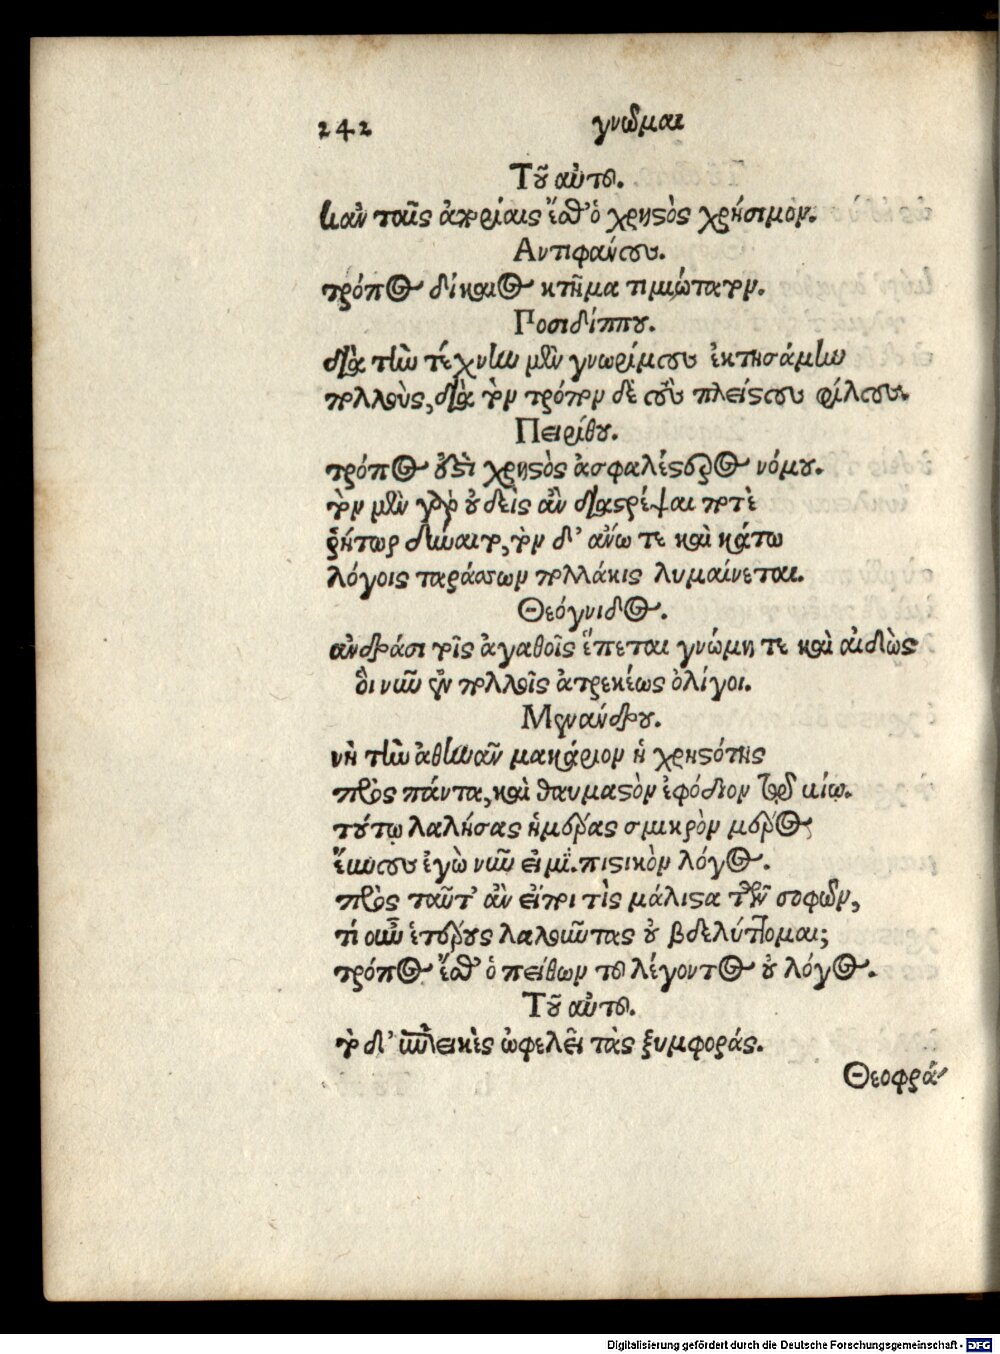 242 γνῶμαι
Τοῦ αὐτοῦ.
κἀν ταῖς ἀχρείαις ἔσθ' ὁ χρηστὸς χρήσιμον.
Αντιφάνους.
τρόπος δίκαιος κτῆμα τιμιώτατον.
Ποσιδίππου.
διὰ τὴν τέχνην μὲν γνωρίμους ἐκτησάμην
πολλοὺς, διὰ τὸν τρόπον δὲ τοὺς πλείστους φίλους.
Πειρίθου.
τρόπος ἐστὶ χρηστὸς ἀσφαλέστερος νόμου.
τὸν μὲν γὰρ οὐδεὶς ἂν διαστρέψαι ποτὲ
ῥήτωρ δύναιτο, τὸν δ' ἄνω τε καὶ κάτω
λόγοις ταράσσων πολλάκις λυμαίνεται.
Θεόγνιδος.
ἀνδράσι τοῖς ἀγαθοῖς ἕπεται γνώμη τε καὶ αἰδὼς
οἳ νῦν ἐν πολλοῖς ἀτρεκέως ὀλίγοι.
Μενάνδρου.
νὴ τὴν ἀθηνᾶν μακάριον ἡ χρηστότης
πρὸς πάντα, καὶ θαυμαστὸν ἐφόδιον τῷ βίῳ.
τούτῳ λαλήσας ἡμέρας σμικρὸν μέρος
εὔνους ἐγὼ νῦν εἰμί. πιστικὸν λόγος.
πρὸς ταῦτ' ἂν εἴποι τὶς μάλιστα τῶν σοφῶν,
τί οὖν ἑτέρους λαλοῦντας οὐ βδελύττομαι;
τρόπος ἔσθ' ὁ πείθων τοῦ λέγοντος οὐ λόγος.
Τοῦ αὐτοῦ.
τὸ δ' ἐπιεικὲς ὠφελεῖ τὰς ξυμφοράς.
Θεοφρά
Digitalisierung gefördert durch die Deutsche Forschungsgemeinschaft - DFG